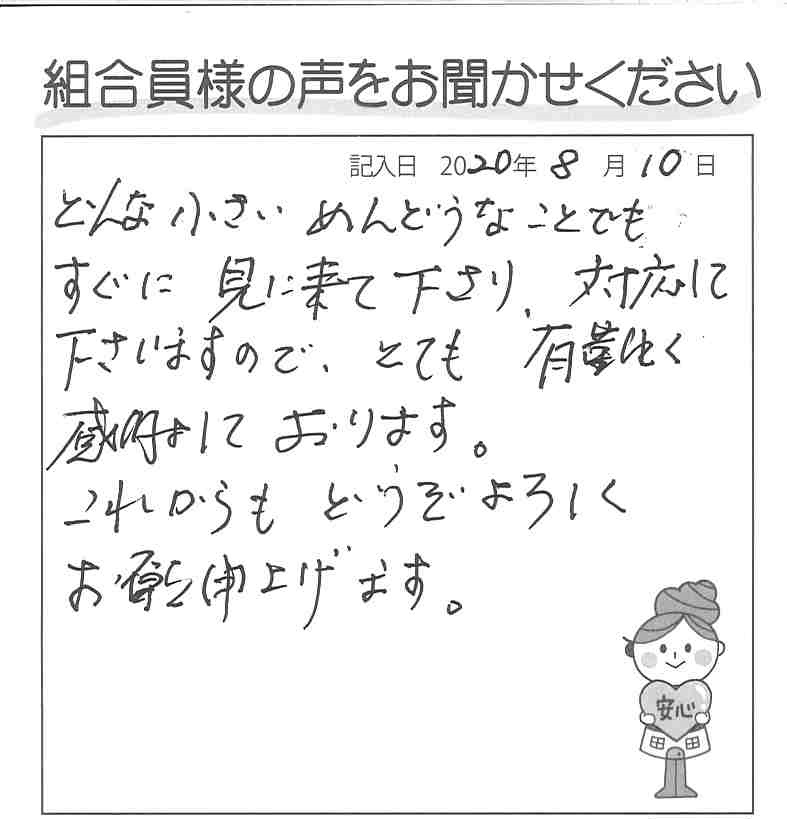 組合員様の声をお聞かせください
記入日 2020年 8月 10日
どんな小さい めんどうなことでも
すぐに 見に来て下さり、対応して
下さいますので、とても 有難く
感謝して おります。
これからも どうぞよろしく
お願い申上げます。
安心